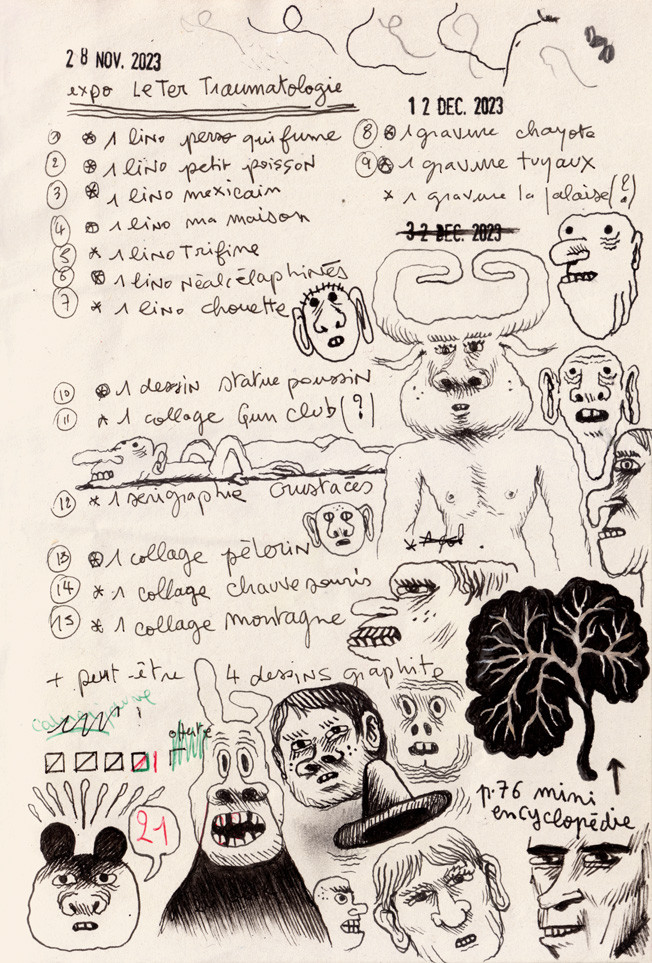 28 NOV. 2023
expo Le Ter Traumatologie
1 * 1 lino perso qui fume
2 * 1 lino petit poisson
3 * 1 lino mexicain
4 * 1 lino ma maison
5 * 1 lino Trifine
6 * 1 lino Néalcélaphinés
7 * 1 lino chouette
12 DEC. 2023
8 * 1 gravure chayote
9 * 1 gravure tuyaux
* 1 gravure la falaise (?)
32 DEC. 2023
10 * 1 dessin statue poussin
11 * 1 collage Gun club (?)
12 * 1 sérigraphie crustacés
13 * 1 collage pèlerin
14 * 1 collage chauve souris
15 * 1 collage montagne
+ peut-être 4 dessins graphite
21
p.76 mini
encyclopédie